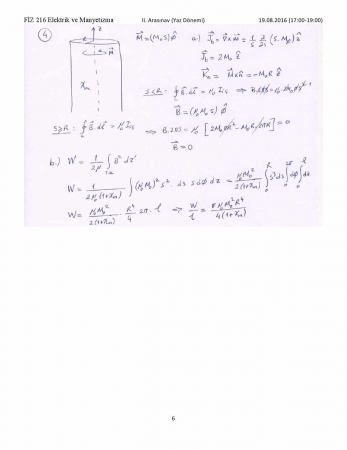 FİZ 216 Elektrik ve Manyetizma II. Arasınav (Yaz Dönemi) 19.08.2016 (17:00-19:00)
4
z
M⃗ = (M₀ s) φ̂ a.) J⃗_b = ∇⃗ x M⃗ = 1/s ∂/∂s (s. M_φ) ẑ
M⃗
J⃗_b = 2M₀ ẑ
K⃗_b = M⃗ x n̂ = -M₀ R ẑ
χ_m
s≤R : ∮ B⃗.dl⃗ = μ₀ I_iç ⇒
B⃗ = (μ₀ M₀ s) φ̂
s≥R : ∮ B⃗.dl⃗ = μ₀ I_iç ⇒ B.2πs = μ₀ [2M₀ πR² - M₀R 2πR] = 0
B⃗ = 0
b.) W = 1/2μ ∫ B² dτ'
W = 1/2μ₀(1+χ_m) ∫ (μ₀ M₀)² s² . ds s dφ dz = μ₀ M₀²/2(1+χ_m) ∫₀ᴿ s³ ds ∫₀²π dφ ∫₀ˡ dz
W = μ₀ M₀²/2(1+χ_m) . R⁴/4 2π . l ⇒ W/l = π μ₀ M₀² R⁴/4(1+χ_m)
6